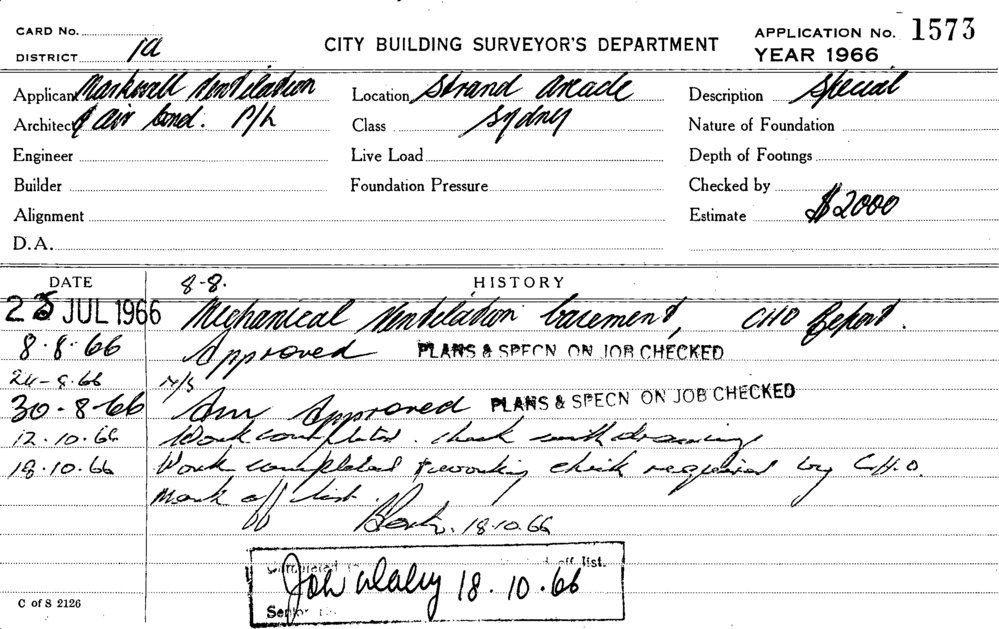 CARD No.
DISTRICT 1a
CITY BUILDING SURVEYOR'S DEPARTMENT
APPLICATION No. 1573
YEAR 1966
Applicant Markwell Ventilation
Architect & Air Cond. P/L
Engineer
Builder
Alignment
D.A.
Location Strand Arcade
Class Sydney
Live Load
Foundation Pressure
Description Special
Nature of Foundation
Depth of Footings
Checked by
Estimate $2000
DATE 8-8. HISTORY
25 JUL 1966 Mechanical Ventilation basement, CHO Report.
8.8.66 Approved PLANS & SPECN ON JOB CHECKED
24-8.66 N/S
30-8-66 Am Approved PLANS & SPECN ON JOB CHECKED
12.10.66 Work completed. check with drawings
18.10.66 Work completed & working check required by C.H.O.
Mark off list.
18.10.66
off list.
18.10.66
Senior
C of S 2126